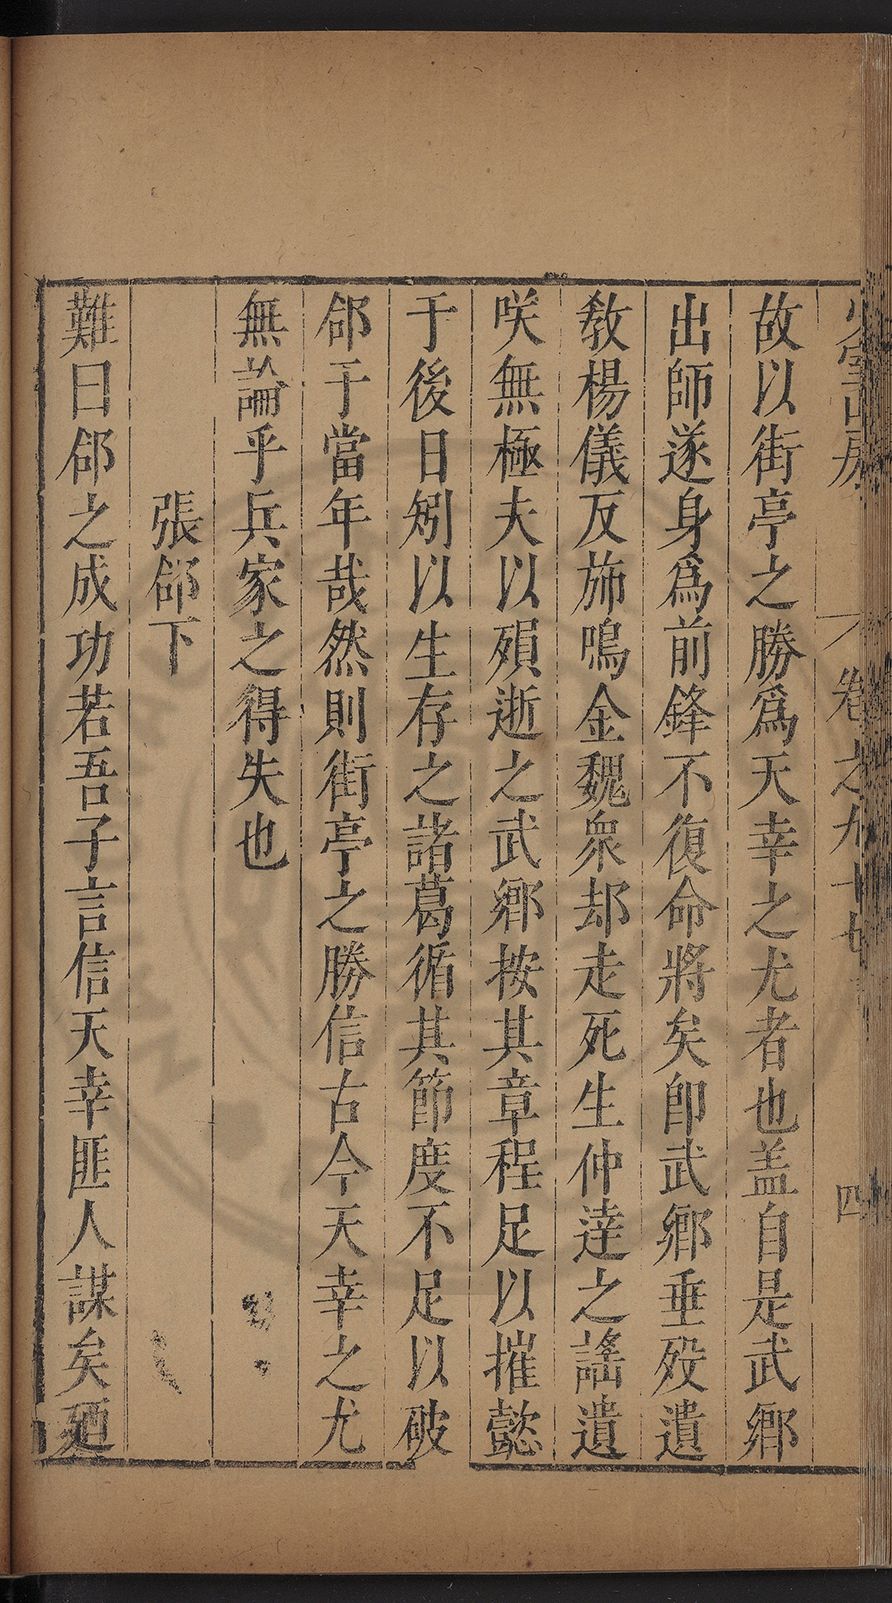 少室山房
卷之九十七
四
故以街亭之勝爲天幸之尤者也盖自是武鄉
出師遂身爲前鋒不復命將矣卽武鄉垂殁遺
敎楊儀反斾鳴金魏衆却走死生仲達之謠遺
咲無極夫以殞逝之武鄉按其章程足以摧懿
于後日矧以生存之諸葛循其節度不足以破
郃于當年哉然則街亭之勝信古今天幸之尤
無論乎兵家之得失也
張郃下
難曰郃之成功若吾子言信天幸匪人謀矣廼